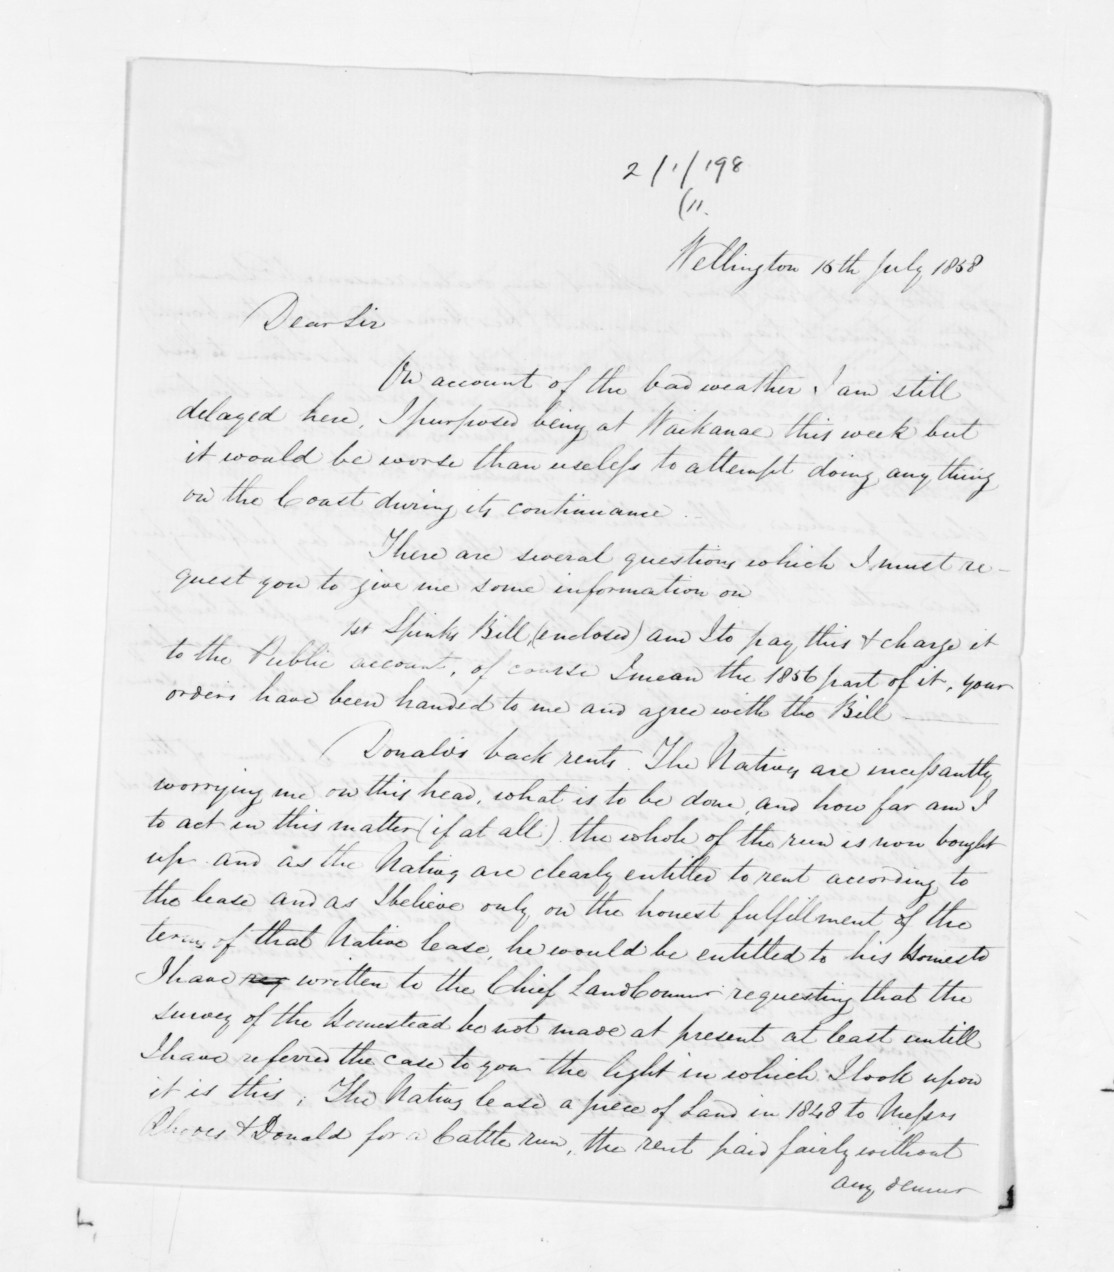 2/1/198
(11.
Wellington 15th July 1858
Dear Sir
On account of the bad weather I am still
delayed here, I purposed being at Waikanae this week but
it would be worse than useless to attempt doing anything
on the Coast during its continuance.
There are several questions which I must re-
quest you to give me some information on
1st Spinks Bill, (enclosed) am I to pay this & charge it
to the Public account, of course I mean the 1856 part of it, your
orders have been handed to me and agree with the Bill
Donalds back rents. The Natives are incessantly
worrying me on this head, what is to be done, and how far am I
to act in this matter (if at all) the whole of the run is now bought
up and as the Natives are clearly entitled to rent according to
the lease and as I believe only on the honest fulfillment of the
terms of that Native lease, he would be entitled to his Homestd
I have written to the Chief Land Commr requesting that the
survey of the Homestead be not made at present at least untill
I have referred the case to you the light in which I look upon
it is this; The Natives lease a piece of Land in 1848 to Messrs
& Donald for a Cattle run, the rent paid fairly without
any demur